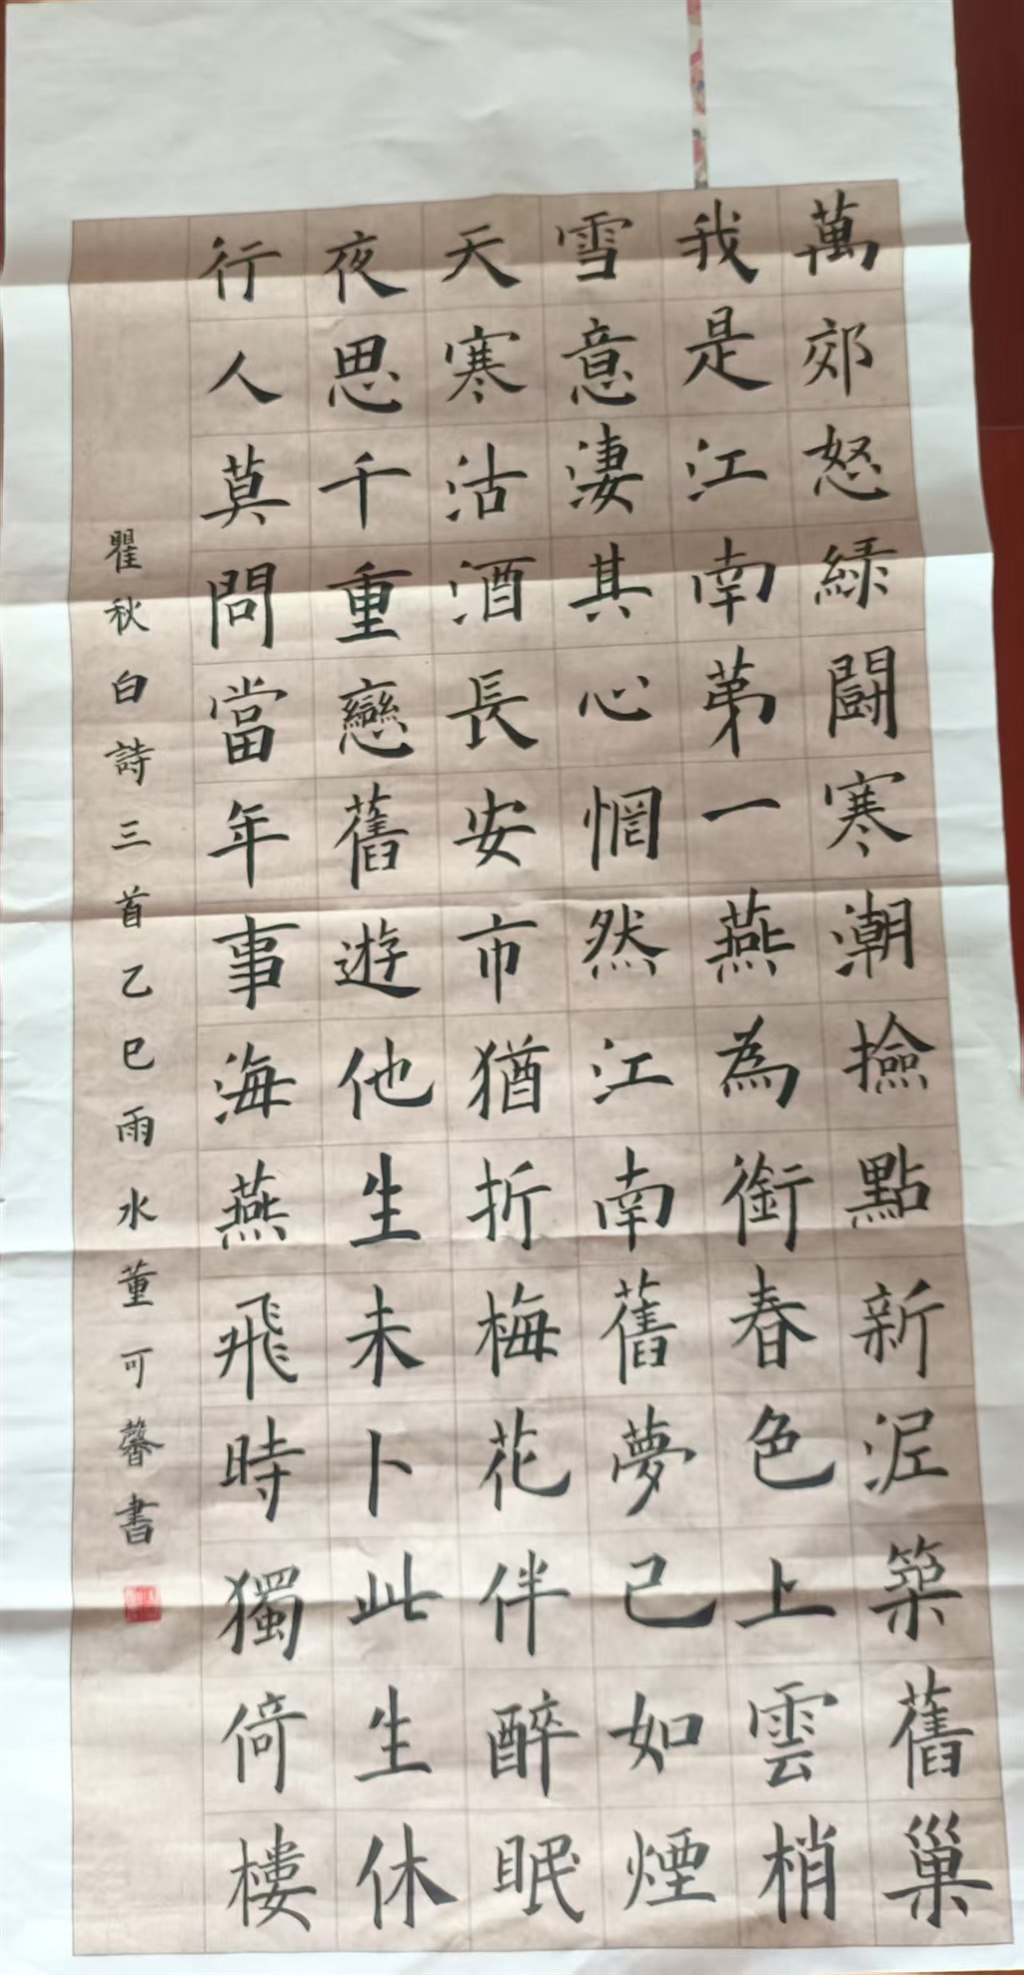 萬郊怒綠鬪寒潮撿點新泥築舊巢
我是江南第一燕為銜春色上雲梢
雪意淒其心惘然江南舊夢已如煙
天寒沽酒長安市猶折梅花伴醉眠
夜思千重戀舊遊他生未卜此生休
行人莫問當年事海燕飛時獨倚樓
瞿秋白詩三首乙巳雨水董可馨書